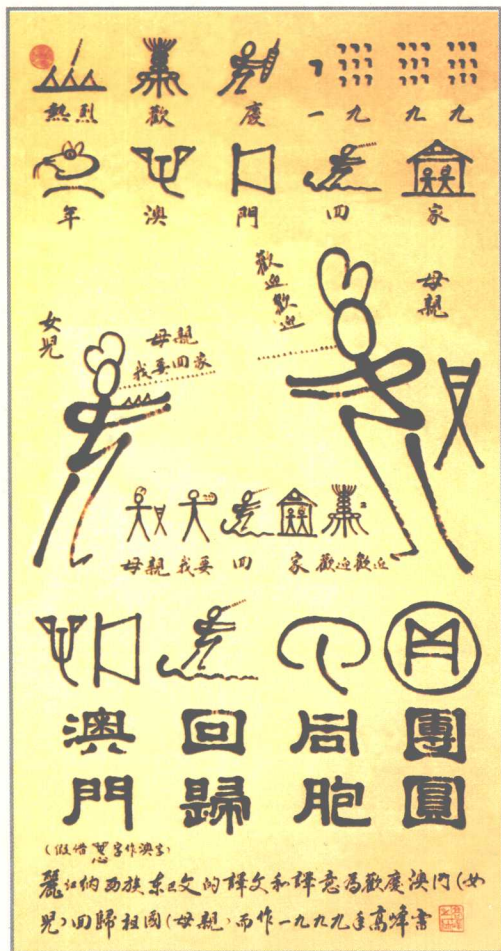 熱烈 歡 慶 一九 九 九
年 澳 門 回 家
女兒
母親
我要回家
歡迎歡迎
母親
母親 我要 回 家 歡迎歡迎
澳 回 同 團
門 歸 胞 圓
(假借 字作澳字)
麗江納西族东巴文的譯文和譯意為歡慶澳门(女
兒)回歸祖國(母親)而作一九九九年高峰書